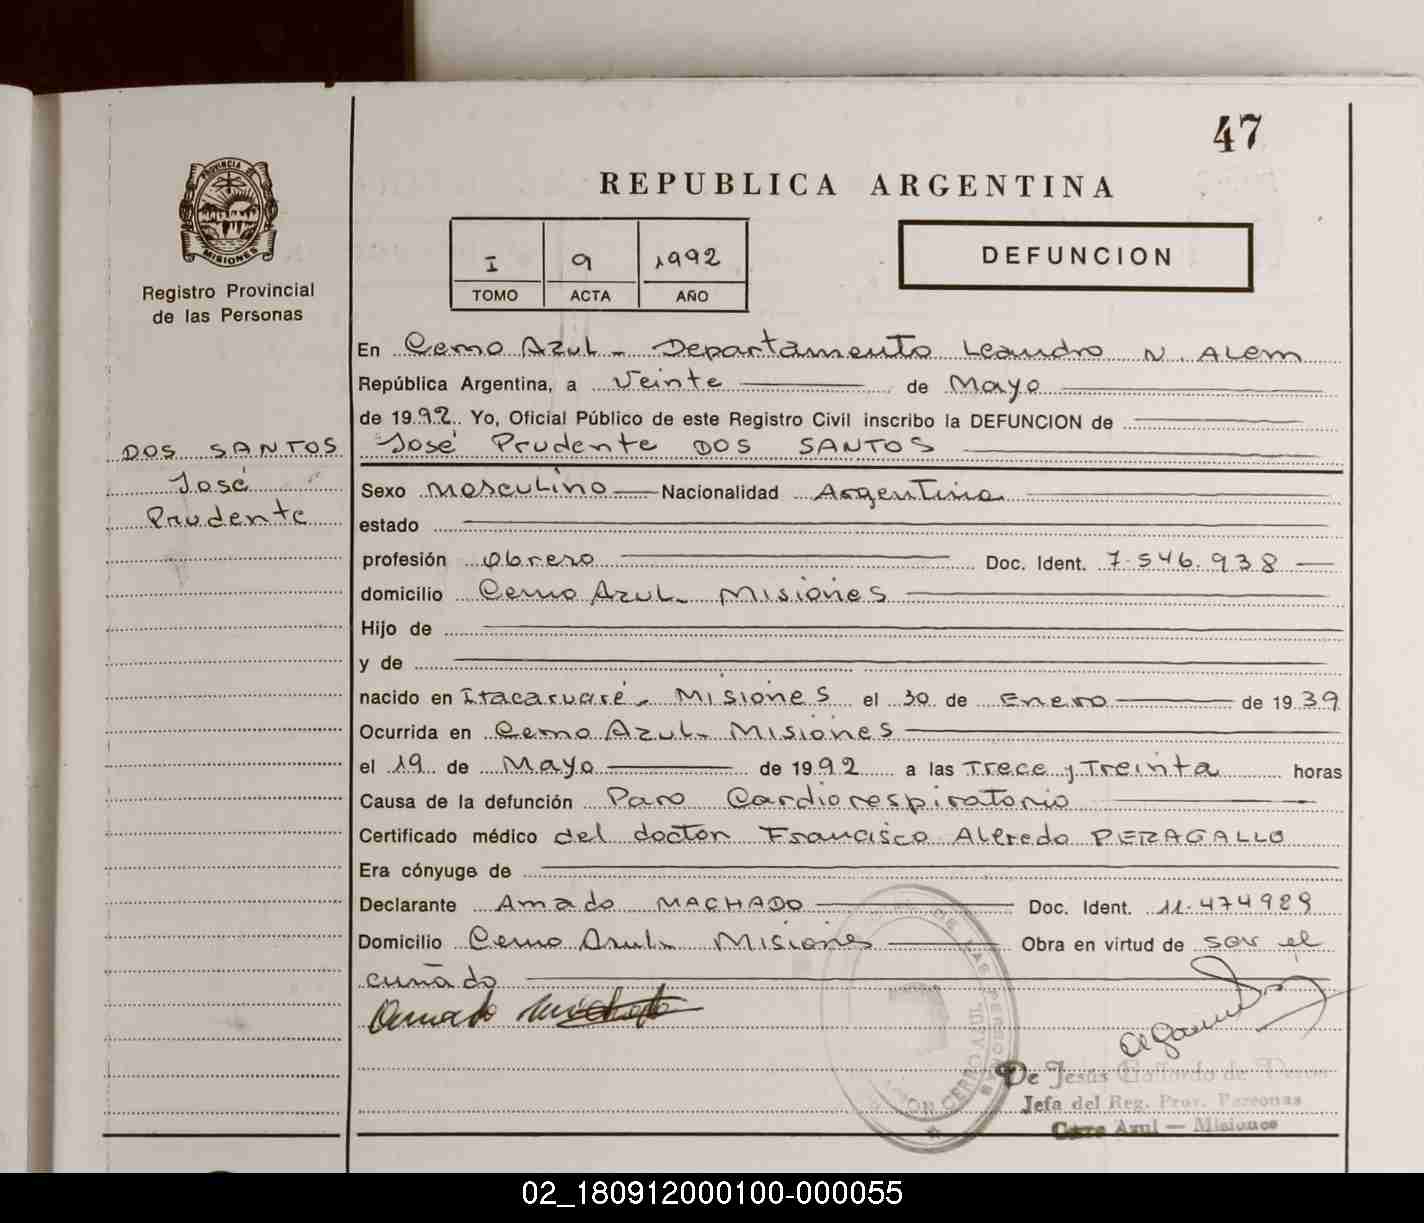 47
PROVINCIA DE
MISIONES
Registro Provincial
de las Personas
REPUBLICA ARGENTINA
I 9 1992
TOMO ACTA AÑO
DEFUNCION
DOS SANTOS
José
Prudente
En Cerro Azul - Departamento Leandro N. Alem
República Argentina, a Veinte de Mayo
de 1992. Yo, Oficial Público de este Registro Civil inscribo la DEFUNCION de
José Prudente DOS SANTOS
Sexo Masculino Nacionalidad Argentina
estado
profesión Obrero Doc. Ident. 7.546.938
domicilio Cerro Azul - Misiones
Hijo de
y de
nacido en Itacaruaré - Misiones el 30 de Enero de 1939
Ocurrida en Cerro Azul - Misiones
el 19 de Mayo de 1992 a las Trece y Treinta horas
Causa de la defunción Paro Cardiorespiratorio
Certificado médico del doctor Francisco Alfredo PERAGALLO
Era cónyuge de
Declarante Amado MACHADO Doc. Ident. 11.474989
Domicilio Cerro Azul - Misiones Obra en virtud de ser el
cuñado
Amado Machado
DE LAS PERSONAS
CERRO AZUL
De Jesús Gallardo de Veron
Jefa del Reg. Prov. Personas
Cerro Azul — Misiones
02_180912000100-000055